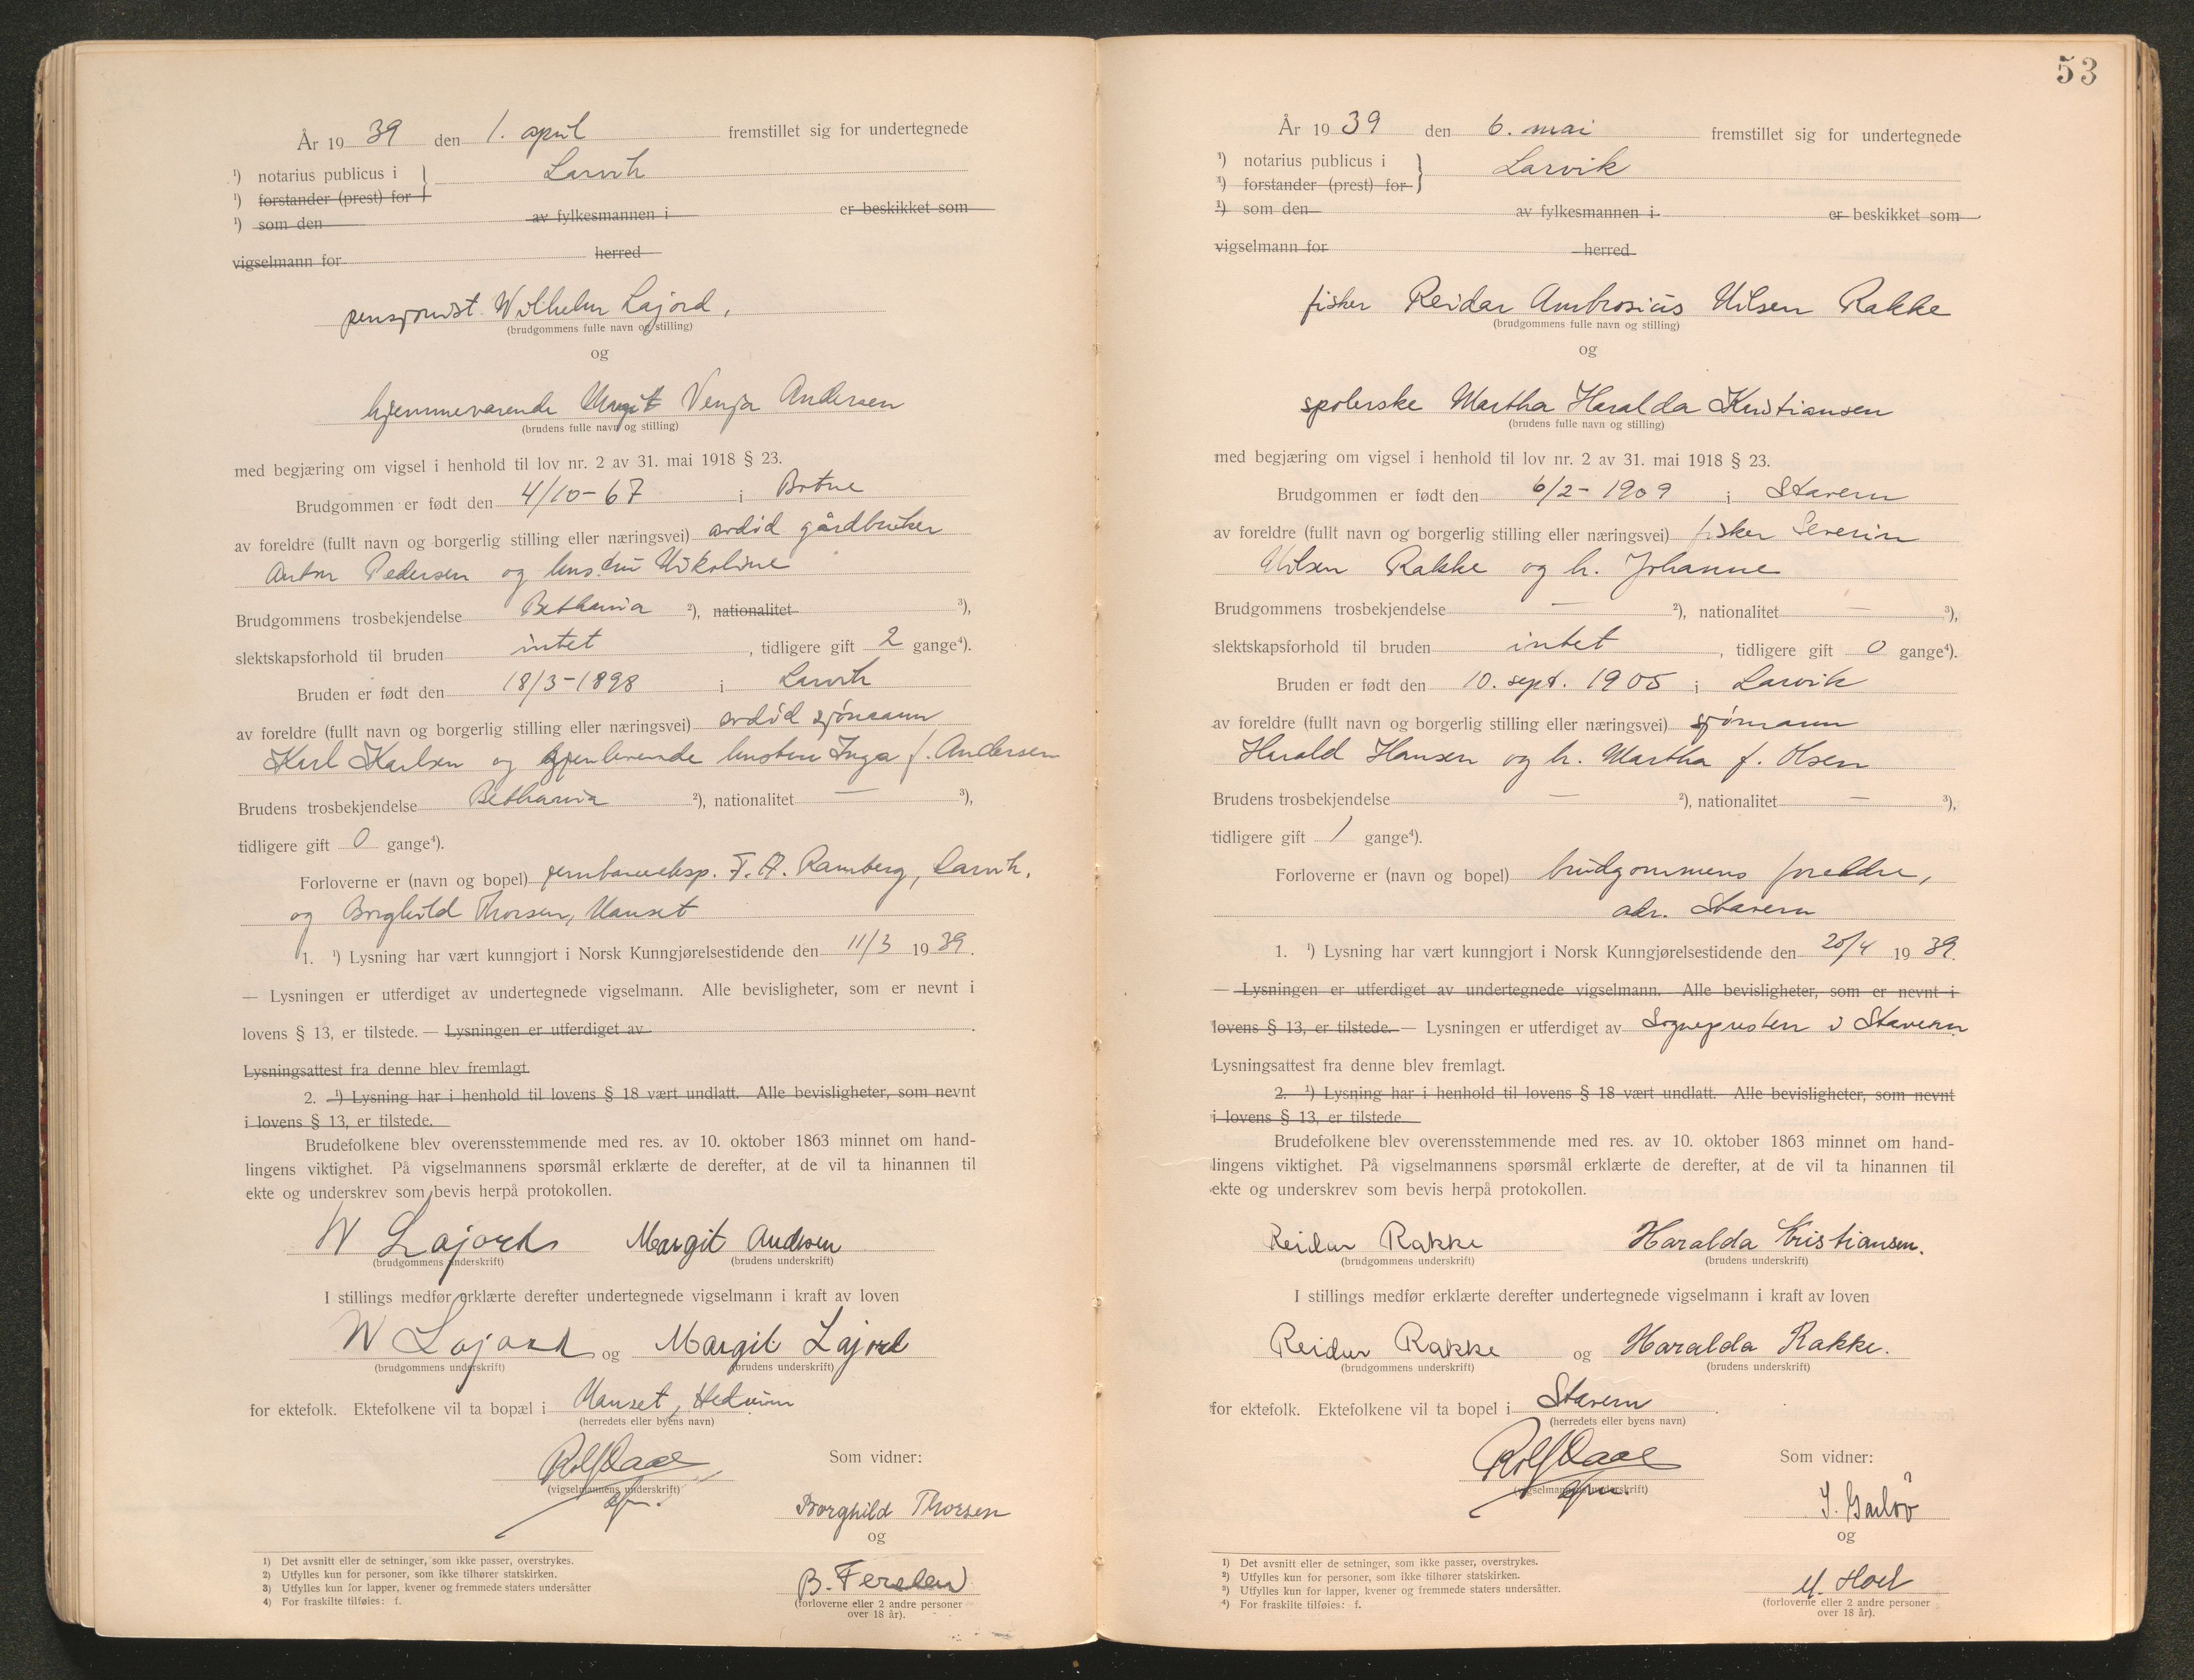 År 19 39 den 1. april fremstillet sig for undertegnede
¹) notarius publicus i } Larvik
¹) forstander (prest) for
¹) som den av fylkesmannen i er beskikket som
vigselmann for herred
pensjonist Wilhelm Lajord,
(brudgommens fulle navn og stilling)
og
hjemmeværende Margit Venja Andersen
(brudens fulle navn og stilling)
med begjæring om vigsel i henhold til lov nr. 2 av 31. mai 1918 § 23.
Brudgommen er født den 4/10-67 i Botne
av foreldre (fullt navn og borgerlig stilling eller næringsvei) avdød gårdbruker
Anton Pedersen og hustru Nikoline
Brudgommens trosbekjendelse Bethania ²), nationalitet ³),
slektskapsforhold til bruden intet , tidligere gift 2 gange⁴).
Bruden er født den 18/3-1898 i Larvik
av foreldre (fullt navn og borgerlig stilling eller næringsvei) avdød sjømann
Karl Karlsen og gjenlevende hustru Inga f. Andersen
Brudens trosbekjendelse Bethania ²), nationalitet — ³),
tidligere gift 0 gange⁴).
Forloverne er (navn og bopel) jernbaneeksp. F. A. Ramberg, Larvik,
og Borghild Thorsen, Nanset
1. ¹) Lysning har vært kunngjort i Norsk Kunngjørelsestidende den 11/3 19 39.
— Lysningen er utferdiget av undertegnede vigselmann. Alle bevisligheter, som er nevnt i
lovens § 13, er tilstede. — Lysningen er utferdiget av .
Lysningsattest fra denne blev fremlagt.
2. ¹) Lysning har i henhold til lovens § 18 vært undlatt. Alle bevisligheter, som nevnt
i lovens § 13, er tilstede.
Brudefolkene blev overensstemmende med res. av 10. oktober 1863 minnet om hand-
lingens viktighet. På vigselmannens spørsmål erklærte de derefter, at de vil ta hinannen til
ekte og underskrev som bevis herpå protokollen.
W Lajord Margit Andersen
(brudgommens underskrift) (brudens underskrift)
I stillings medfør erklærte derefter undertegnede vigselmann i kraft av loven
W Lajord og Margit Lajord
(brudgommens underskrift) (brudens underskrift)
for ektefolk. Ektefolkene vil ta bopæl i Nanset, Hedrum
(herredets eller byens navn)
Rolf Daae Som vidner:
(vigselmannens underskrift)
Borghild Thorsen
og
B. Ferslew
(forloverne eller 2 andre personer
over 18 år).
1) Det avsnitt eller de setninger, som ikke passer, overstrykes.
2) Utfylles kun for personer, som ikke tilhører statskirken.
3) Utfylles kun for lapper, kvener og fremmede staters undersåtter
4) For fraskilte tilføies: f.
53
År 19 39 den 6. mai fremstillet sig for undertegnede
¹) notarius publicus i } Larvik
¹) forstander (prest) for
¹) som den av fylkesmannen i er beskikket som
vigselmann for herred
fisker Reidar Ambrosius Nilsen Rakke
(brudgommens fulle navn og stilling)
og
spolerske Martha Haralda Kristiansen
(brudens fulle navn og stilling)
med begjæring om vigsel i henhold til lov nr. 2 av 31. mai 1918 § 23.
Brudgommen er født den 6/2-1909 i Stavern
av foreldre (fullt navn og borgerlig stilling eller næringsvei) fisker Severin
Nilsen Rakke og h. Johanne
Brudgommens trosbekjendelse — ²), nationalitet — ³),
slektskapsforhold til bruden intet , tidligere gift 0 gange⁴).
Bruden er født den 10. sept. 1905 i Larvik
av foreldre (fullt navn og borgerlig stilling eller næringsvei) sjømann
Harald Hansen og h. Martha f. Olsen
Brudens trosbekjendelse — ²), nationalitet — ³),
tidligere gift 1 gange⁴).
Forloverne er (navn og bopel) brudgommens foreldre,
adr. Stavern
1. ¹) Lysning har vært kunngjort i Norsk Kunngjørelsestidende den 20/4 19 39.
— Lysningen er utferdiget av undertegnede vigselmann. Alle bevisligheter, som er nevnt i
lovens § 13, er tilstede. — Lysningen er utferdiget av Sognepresten i Stavern
Lysningsattest fra denne blev fremlagt.
2. ¹) Lysning har i henhold til lovens § 18 vært undlatt. Alle bevisligheter, som nevnt
i lovens § 13, er tilstede.
Brudefolkene blev overensstemmende med res. av 10. oktober 1863 minnet om hand-
lingens viktighet. På vigselmannens spørsmål erklærte de derefter, at de vil ta hinannen til
ekte og underskrev som bevis herpå protokollen.
Reidar Rakke Haralda Kristiansen.
(brudgommens underskrift) (brudens underskrift)
I stillings medfør erklærte derefter undertegnede vigselmann i kraft av loven
Reidar Rakke og Haralda Rakke.
(brudgommens underskrift) (brudens underskrift)
for ektefolk. Ektefolkene vil ta bopel i Stavern .
(herredets eller byens navn)
Rolf Daae Som vidner:
(vigselmannens underskrift)
og
M. Hoel
(forloverne eller 2 andre personer
over 18 år).
1) Det avsnitt eller de setninger, som ikke passer, overstrykes.
2) Utfylles kun for personer, som ikke tilhører statskirken.
3) Utfylles kun for lapper, kvener og fremmede staters undersåtter.
4) For fraskilte tilføies: f.